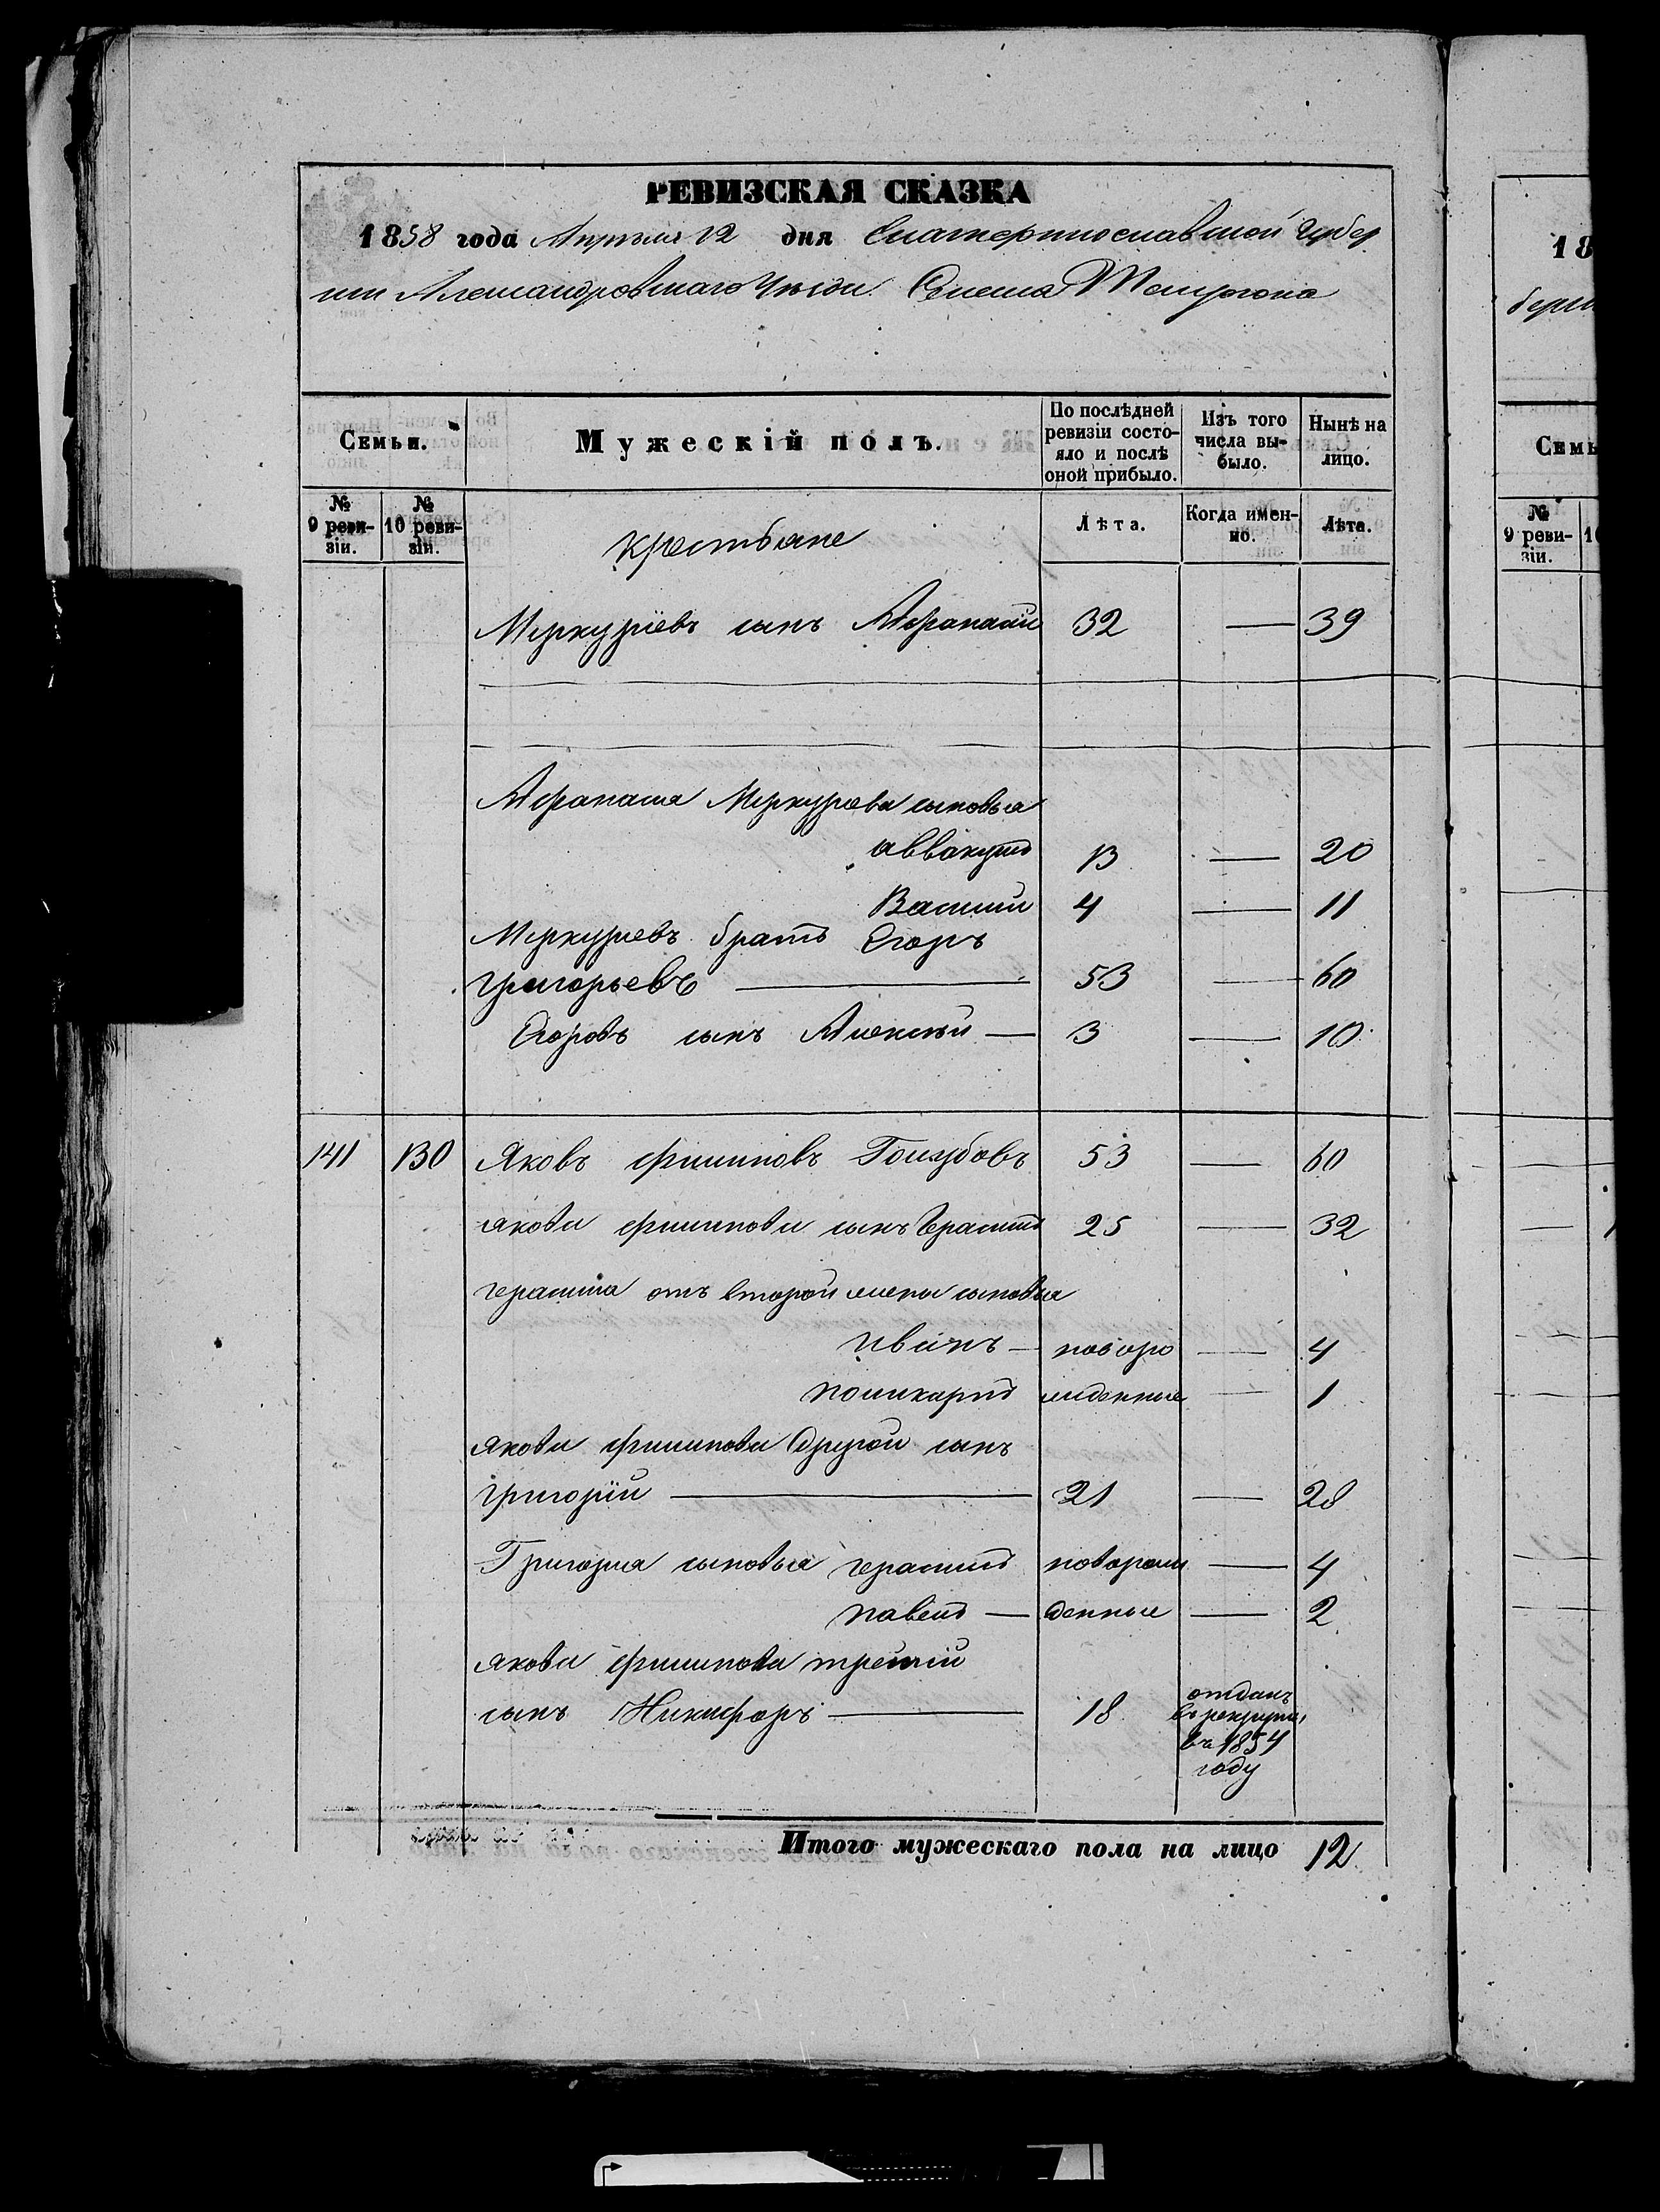 РЕВИЗСКАЯ СКАЗКА
1858 года Апрѣля 12 дня Екатеринославской Губер
нiи Александровскаго Уѣзда Села Темрюка
Семьи. Мужескiй полъ. По послѣдней ревизiи состояло и послѣ оной прибыло. Изъ того числа выбыло. Нынѣ на лицо.
№ 9 ревизiи. № 10 ревизiи. крестьяне Лѣта. Когда именно. Лѣта.
Меркурiевъ сынъ Афанасiй 32 — 39
Афанасiя Меркурьева сыновья
аввакумъ 13 — 20
Василiй 4 — 11
Меркурьевъ братъ Егоръ
григорьевъ — 53 — 60
Егоровъ сынъ Алексѣй — 3 — 10
141 130 Яковъ филиповъ Голубовъ 53 — 60
якова филипова сынъ Герасимъ 25 — 32
герасима отъ второй жены сыновья
иванъ — новоро — 4
поликарпъ жденные — 1
якова филипова другой сынъ
григорiй — 21 — 28
Григорiя сыновья герасимъ новорож — 4
павелъ — денные — 2
якова филипова третiй
сынъ Никифоръ — 18 отданъ
въ рекруты
въ 1854
году
Итого мужескаго пола на лицо 12
18
берн
Семь
№ 9 ревизiи. 10